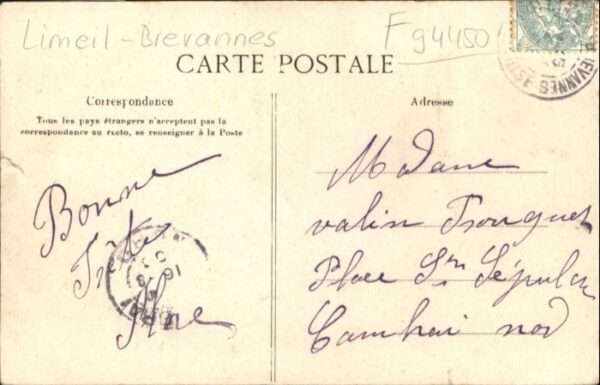 Limeil-Brevannes
F 94450
CARTE POSTALE
Correspondance
Tous les pays étrangers n'acceptent pas la
correspondance au recto, se renseigner à la Poste
Bonne
Fête
Adresse
Madame
Valin Fouquet
Place St Sépulcre
Cambrai nord